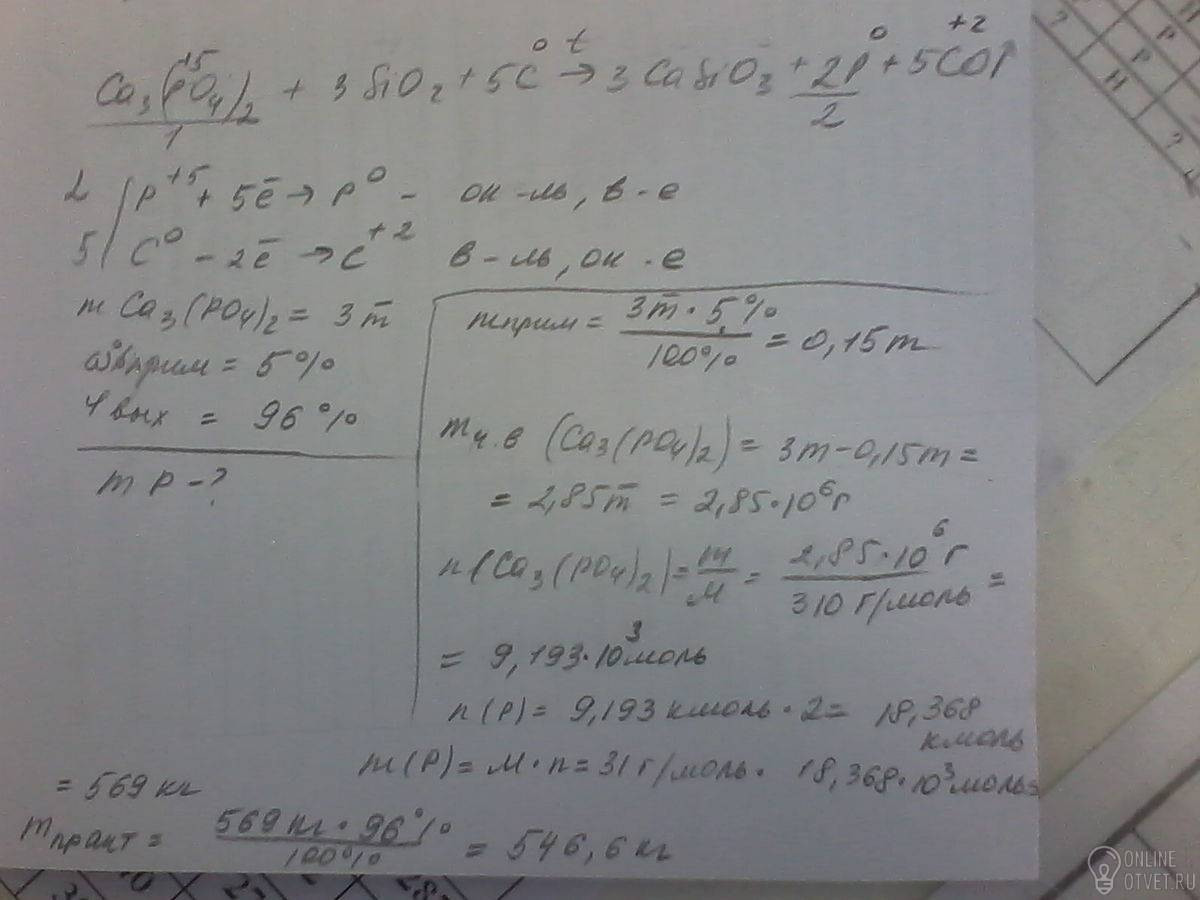 +5 0 t 0 +2
Ca₃(PO₄)₂ + 3SiO₂ + 5C → 3CaSiO₃ + 2P + 5CO↑
1 2
2 | P⁺⁵ + 5ē → P⁰ – ок-ль, в-е
5 | C⁰ – 2ē → C⁺² в-ль, ок-е
m Ca₃(PO₄)₂ = 3т
ω прим = 5%
φ вых = 96%
m P – ?
m прим = 3т · 5% / 100% = 0,15т
m ч.в (Ca₃(PO₄)₂) = 3т – 0,15т =
= 2,85т = 2,85·10⁶г
n(Ca₃(PO₄)₂) = m/M = 2,85·10⁶г / 310 г/моль =
= 9,193·10³моль
n(P) = 9,193 кмоль · 2 = 18,368
кмоль
m(P) = M · n = 31 г/моль · 18,368·10³моль =
= 569 кг
m практ = 569 кг · 96% / 100% = 546,6 кг
ONLINE
OTVET.RU